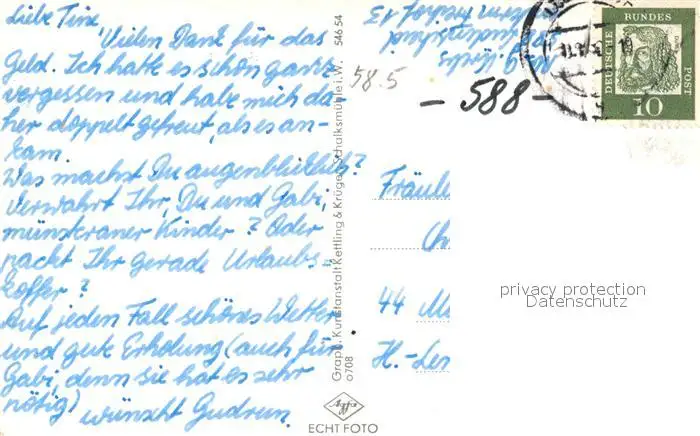 Liebe Tine,
Vielen Dank für das
Geld. Ich hatte es schon ganz
vergessen und habe mich da
her doppelt gefreut, als es an-
kam.
Was machst Du augenblicklich?
Verwahrt Ihr, Du und Gabi,
münsteraner Kinder? Oder
packt Ihr gerade Urlaubs-
koffer?
Auf jeden Fall schönes Wetter
und gute Erholung (auch für
Gabi, denn sie hat es sehr
nötig)
wünscht Gudrun.
Graph. Kunstanstalt Kettling & Krüger, Schalksmühle i. W. 546 54
0708
Agfa
ECHT FOTO
58.5
- 588 -
DEUTSCHE BUNDESPOST
10
Fräule
44 M
H.-Les
privacy protection
Datenschutz